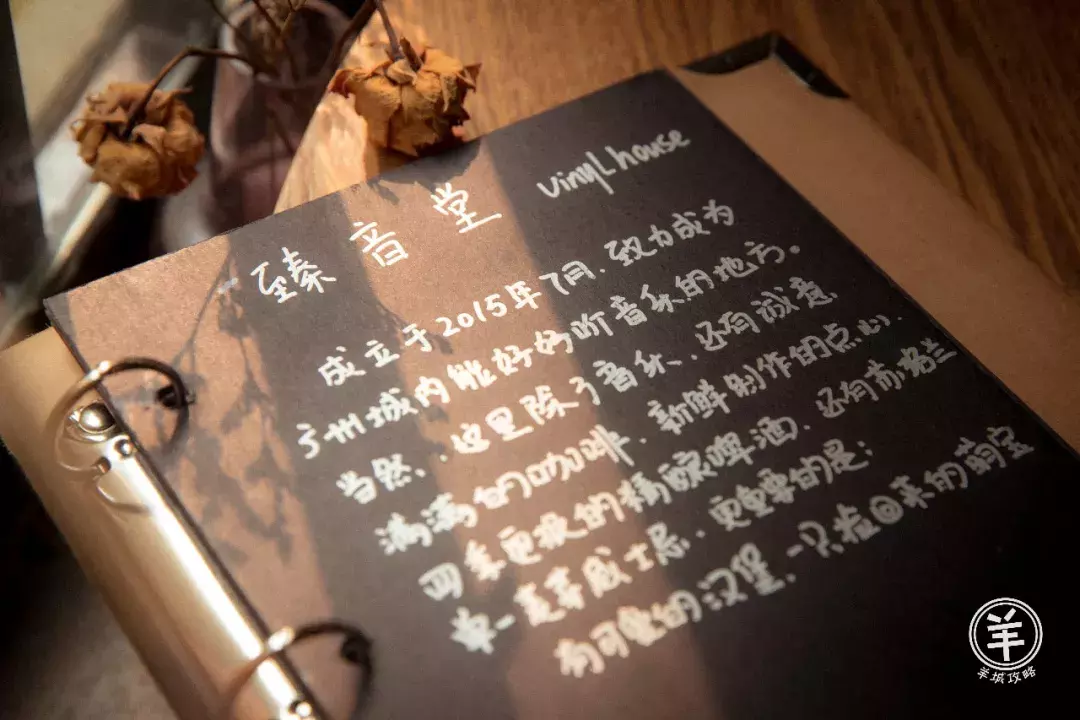 臻音堂 vinyl house
成立于2015年7月.致力成为
广州城内能好好听音乐的地方。
当然、.这里除了音乐、还有诚意
满满的咖啡.新鲜制作的点心.
四季更换的精酿啤酒.还有苏格兰
单一麦芽威士忌.更重要的是:
有可爱的汉堡,一只捡回来的萌宝
羊
羊城攻略